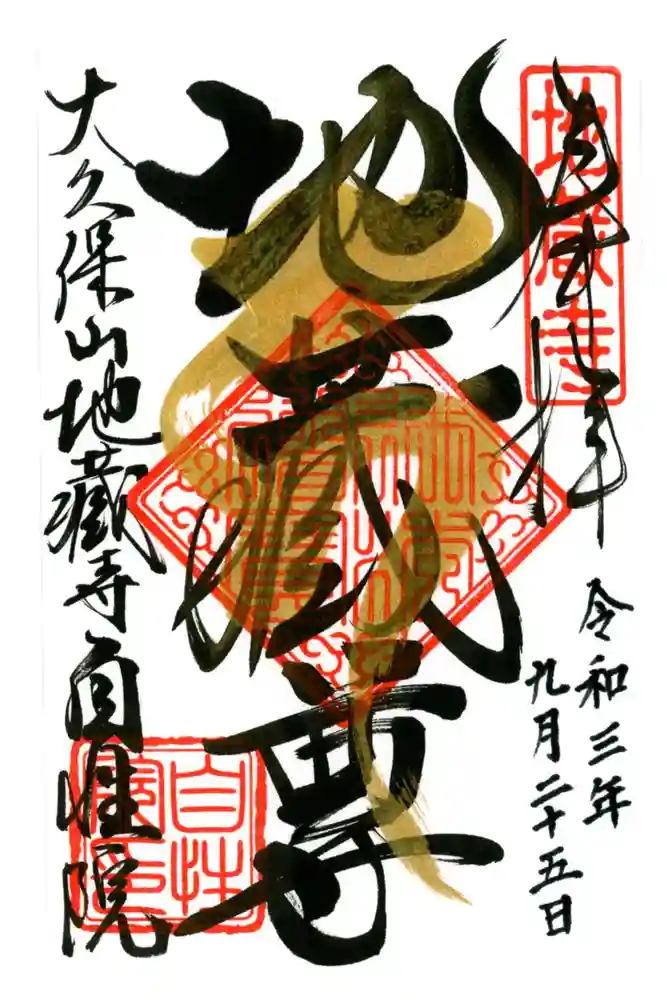 奉拝
地蔵寺
令和三年
九月二十五日
地蔵尊
大久保山地蔵寺自性院
自性
院印